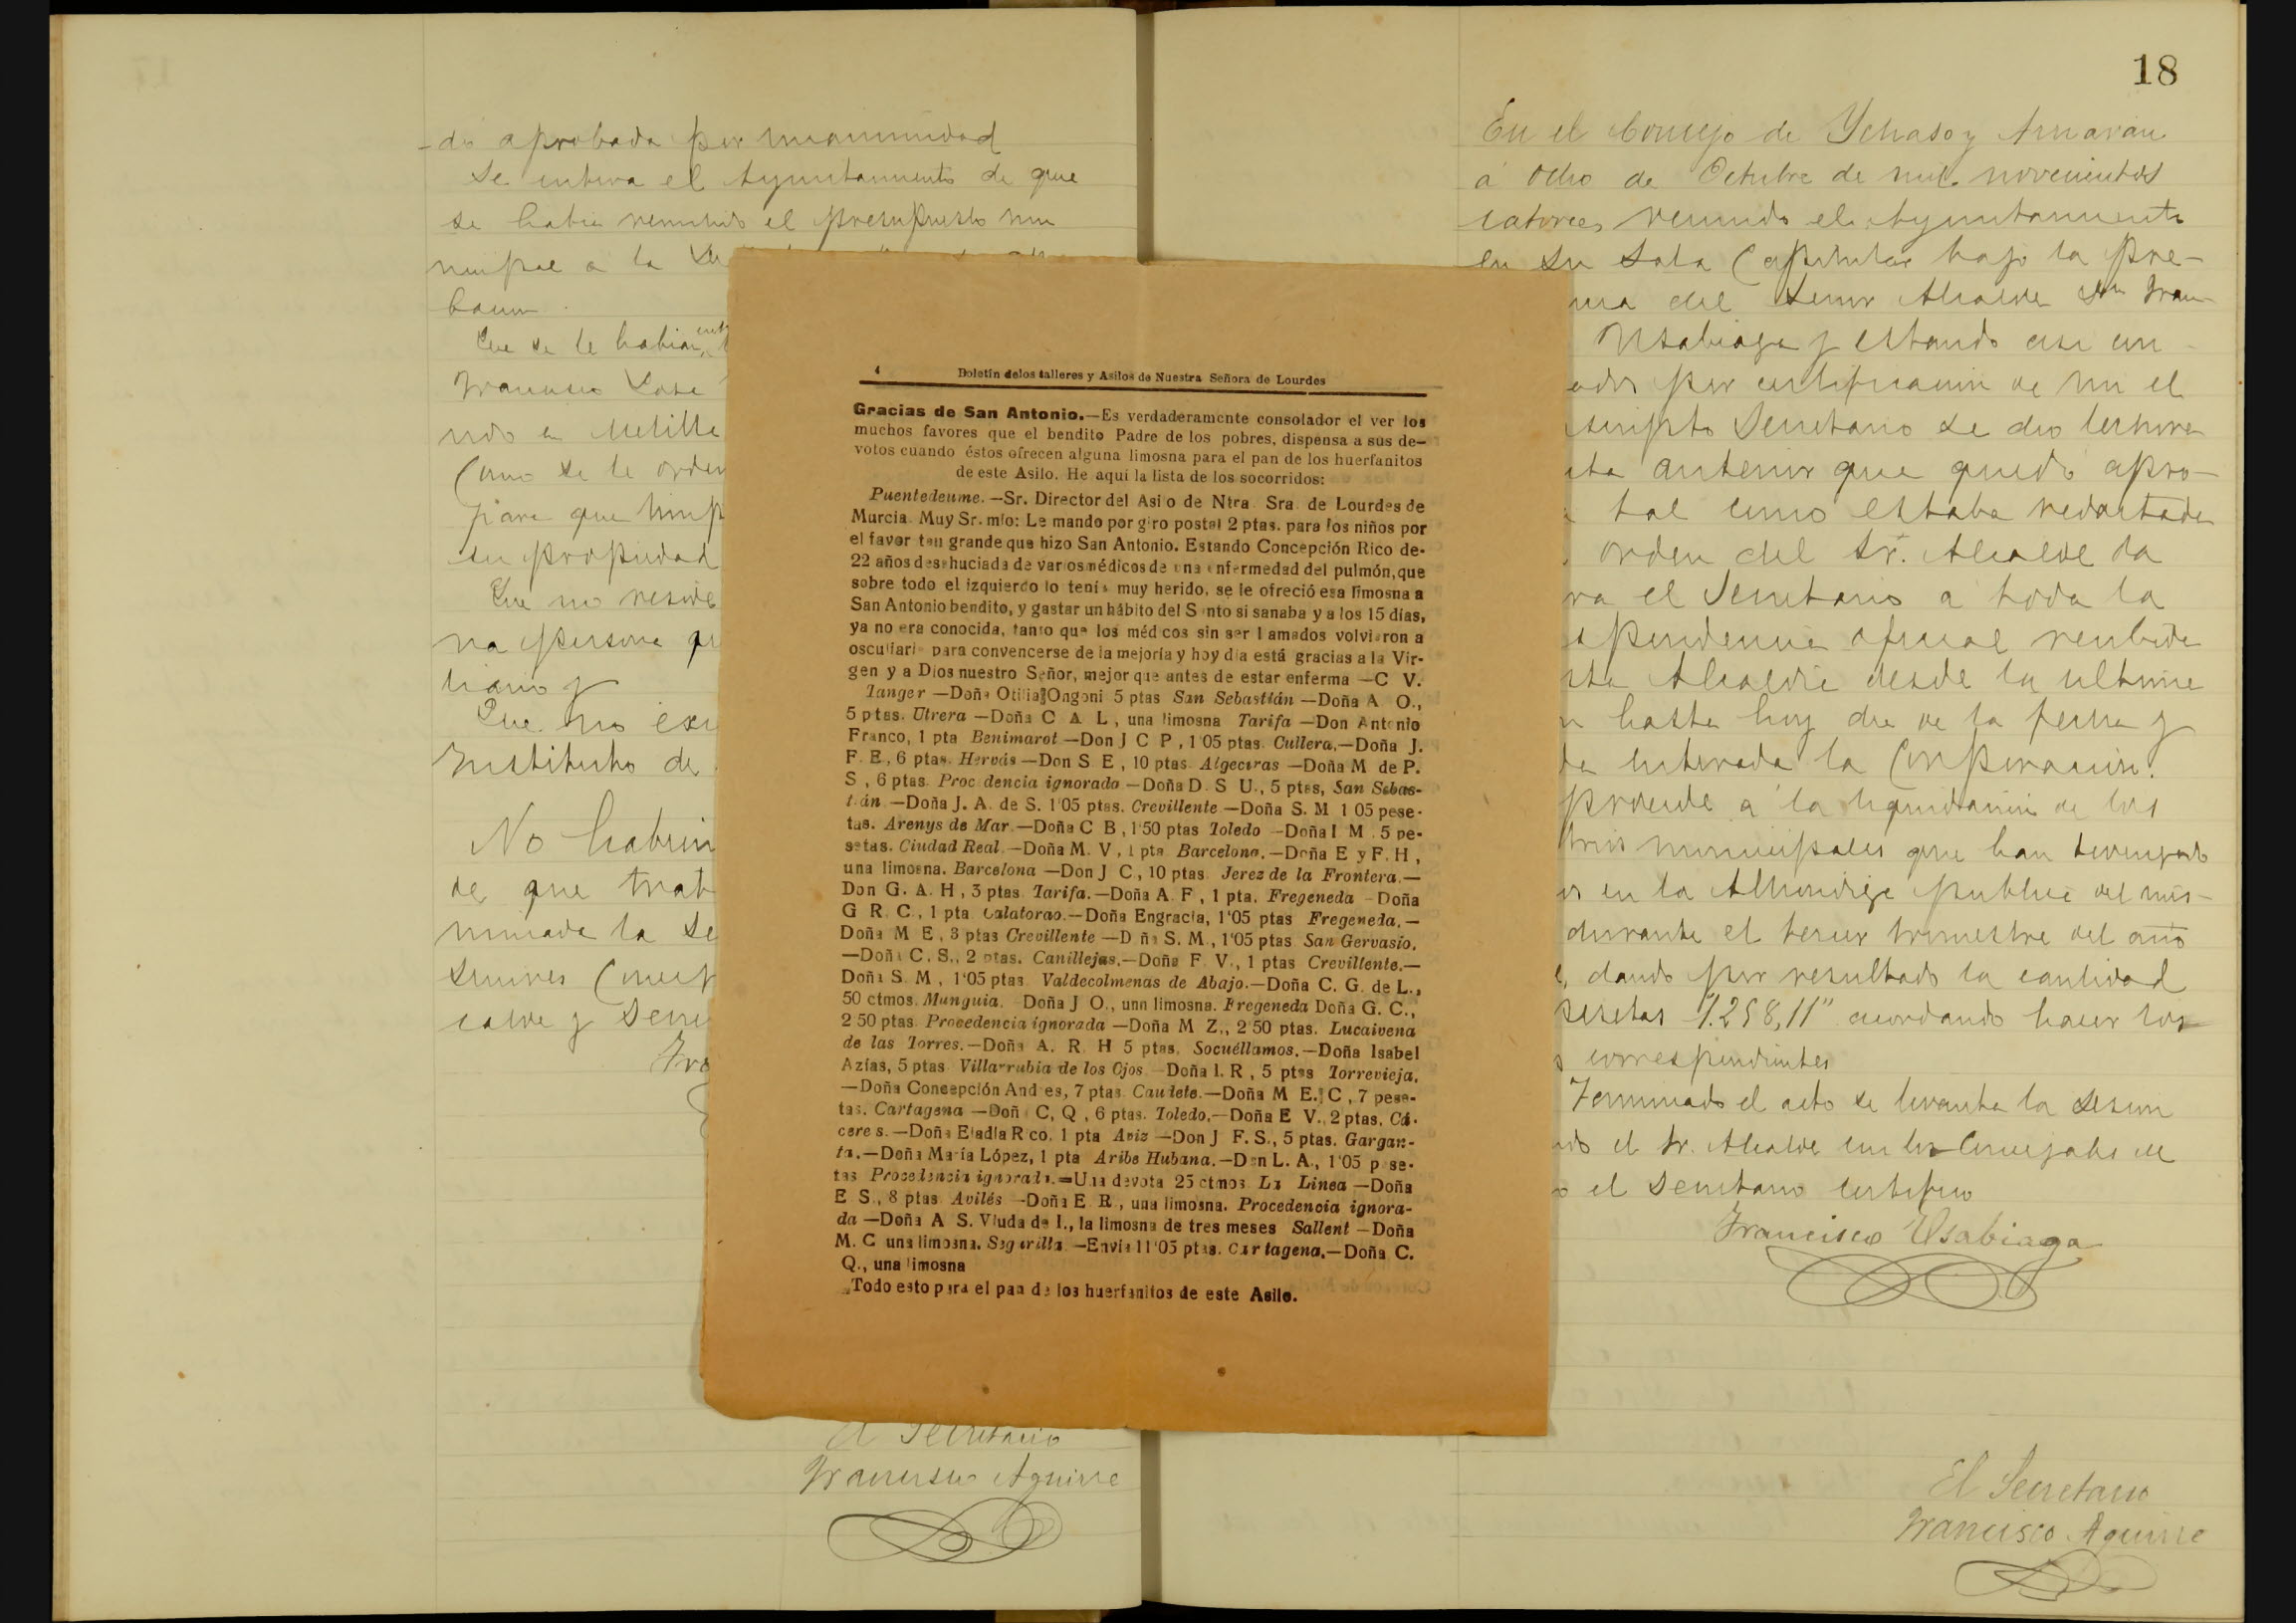 -da aprobada por unanimidad
Se entera el Ayuntamiento de que
se había remitido el presupuesto mu
nicipal a la
Que se le habian
Francisco José
ndo en Melilla
Como se le orden
para que limp
su propiedad
Que no reside
na persona
Que no exis
Instituto de
No habien
de que trat
minada la se
Señores Concej
calde y Secre
Fra
El Secretario
Francisco Aguirre
4 Boletín delos talleres y Asilos de Nuestra Señora de Lourdes
Gracias de San Antonio.—Es verdaderamente consolador el ver los
muchos favores que el bendito Padre de los pobres, dispensa a sus de-
votos cuando éstos ofrecen alguna limosna para el pan de los huerfanitos
de este Asilo. He aquí la lista de los socorridos:
Puentedeume.—Sr. Director del Asi o de Ntra Sra de Lourdes de
Murcia Muy Sr. mío: Le mando por giro postal 2 ptas. para los niños por
el favor tan grande que hizo San Antonio. Estando Concepción Rico de-
22 años desahuciada de varios médicos de una enfermedad del pulmón, que
sobre todo el izquierdo lo tenía muy herido, se le ofreció esa limosna a
San Antonio bendito, y gastar un hábito del S nto si sanaba y a los 15 días,
ya no era conocida, tanto que los méd cos sin ser l amados volvieron a
oscultarle para convencerse de la mejoría y hoy día está gracias a la Vir-
gen y a Dios nuestro Señor, mejor que antes de estar enferma —C V.
Tanger —Doña Otilia Ongoni 5 ptas San Sebastián —Doña A O.,
5 ptas. Utrera —Doña C A L , una limosna Tarifa —Don Antonio
Franco, 1 pta Benimarot —Don J C P , 1'05 ptas. Cullera.—Doña J.
F. E , 6 ptas. Hervás —Don S E , 10 ptas. Algeciras —Doña M de P.
S , 6 ptas. Proc dencia ignorada —Doña D. S U., 5 ptas, San Sebas-
tián —Doña J. A. de S. 1'05 ptas. Crevillente —Doña S. M 1 05 pese-
tas. Arenys de Mar.—Doña C B , 1'50 ptas Toledo —Doña I M . 5 pe-
setas. Ciudad Real —Doña M. V , 1 pta Barcelona.—Doña E y F. H ,
una limosna. Barcelona —Don J C , 10 ptas Jerez de la Frontera.—
Don G. A. H , 3 ptas Tarifa.—Doña A. F , 1 pta. Fregeneda —Doña
G R. C., 1 pta Calatorao.—Doña Engracia, 1'05 ptas Fregeneda.—
Doña M E , 3 ptas Crevillente —D ña S. M., 1'05 ptas San Gervasio.
—Doña C. S., 2 ptas. Canillejas.—Doña F V., 1 ptas Crevillente.—
Doña S. M , 1'05 ptas Valdecolmenas de Abajo.—Doña C. G. de L.,
50 ctmos. Munguia. Doña J O., una limosna. Fregeneda Doña G. C.,
2 50 ptas Procedencia ignorada —Doña M Z., 2'50 ptas. Lucaivena
de las Torres.—Doña A. R. H 5 ptas. Socuéllamos.—Doña Isabel
Azías, 5 ptas Villarrubia de los Ojos Doña I. R , 5 ptas Torrevieja.
—Doña Concepción And es, 7 ptas Caudete.—Doña M E. C , 7 pese-
tas. Cartagena —Doñ C, Q , 6 ptas. Toledo.—Doña E V., 2 ptas, Cá-
cere s.—Doña Eladia R co, 1 pta Aviz —Don J F. S., 5 ptas. Gargan-
ta.—Doña María López, 1 pta Aribe Hubana.—Don L. A., 1'05 p se-
tas Procedencia ignorada.=Una devota 25 ctmos La Linea —Doña
E S., 8 ptas Avilés —Doña E R , una limosna. Procedencia ignora-
da —Doña A S. Viuda de I., la limosna de tres meses Sallent —Doña
M. C una limosna. Segurilla —Envia 11'05 ptas. Cartagena.—Doña C.
Q., una limosna
Todo esto para el pan de los huerfanitos de este Asilo.
18
En el Concejo de Ychaso y Arnaran
á ocho de Octubre de mil novecientos
catorce, reunido el Ayuntamiento
en su Sala Capitular bajo la pre-
ncia del Señor Alcalde Don Fran-
Usabiaga y estando asi con
ados por certificacion de mi el
scripto Secretario se dio lectura
cta anterior que quedó apro-
tal como estaba redactada
orden del Sr. Alcalde da
ra el Secretario a toda la
spondencia oficial recibida
sta Alcaldia desde la ultima
n hasta hoy dia de la fecha y
da enterada la Corporacion.
procede a la liquidación de los
trios municipales que han devengado
os en la Alhondiga publica del mis-
durante el tercer trimestre del año
, dando por resultado la cantidad
pesetas 1.258,11" acordando hacer los
s correspondientes
Terminado el acto se levanta la sesion
ndo el Sr. Alcalde con los Concejales de
o el Secretario certifico
Francisco Usabiaga
El Secretario
Francisco Aguirre